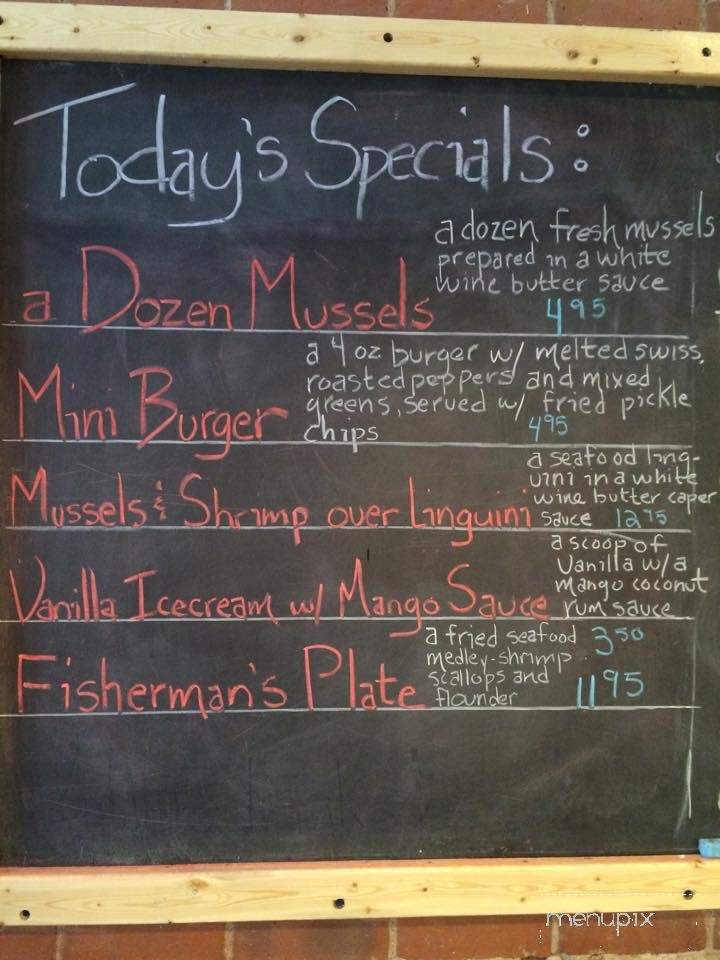 Today's Specials:
a Dozen Mussels
a dozen fresh mussels
prepared in a white
wine butter sauce
4 95
Mini Burger
a 4 oz burger w/ melted swiss,
roasted peppers and mixed
greens, served w/ fried pickle
chips 4 95
Mussels & Shrimp over Linguini
a seafood ling-
uini in a white
wine butter caper
sauce 12 95
Vanilla Icecream w/ Mango Sauce
a scoop of
Vanilla w/ a
Mango coconut
rum sauce
3 50
Fisherman's Plate
a fried seafood
medley-shrimp
scallops and
flounder
11 95
menupix